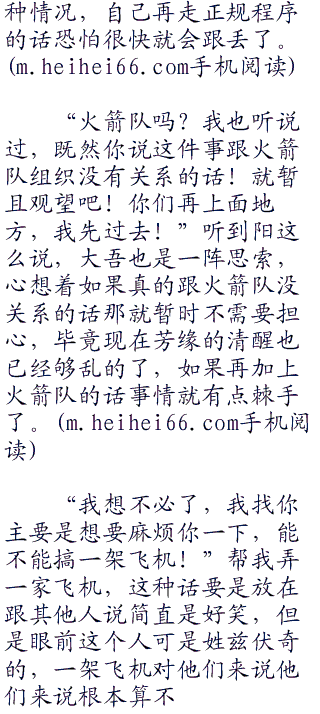 种情况，自己再走正规程序
的话恐怕很快就会跟丢了。
(m.heihei66.com手机阅读)
“火箭队吗？我也听说
过，既然你说这件事跟火箭
队组织没有关系的话！就暂
且观望吧！你们再上面地
方，我先过去！”听到阳这
么说，大吾也是一阵思索，
心想着如果真的跟火箭队没
关系的话那就暂时不需要担
心，毕竟现在芳缘的清醒也
已经够乱的了，如果再加上
火箭队的话事情就有点棘手
了。(m.heihei66.com手机阅
读)
“我想不必了，我找你
主要是想要麻烦你一下，能
不能搞一架飞机！”帮我弄
一家飞机，这种话要是放在
跟其他人说简直是好笑，但
是眼前这个人可是姓兹伏奇
的，一架飞机对他们来说他
们来说根本算不